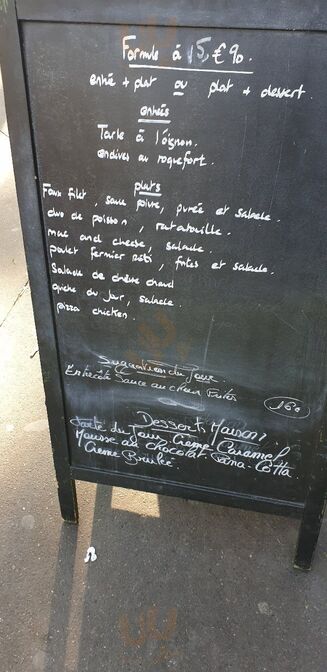 Formule à 15,€90.
entrée + plat ou plat + dessert.
entrées
Tarte à l'oignon.
endives au roquefort.
plats
Faux filet, sauce poivre, purée et salade.
duo de poisson, ratatouille.
mac and cheese, salade
poulet fermier roti, frites et salade.
Salade de chèvre chaud
quiche du jour, salade.
pizza chicken.
Suggestion du Jour
Entrecôte Sauce au choix Frites 16€
Desserts Maison
Tarte du Jour Crème Caramel
Mousse au chocolat Pana-Cotta
Crème Brulée